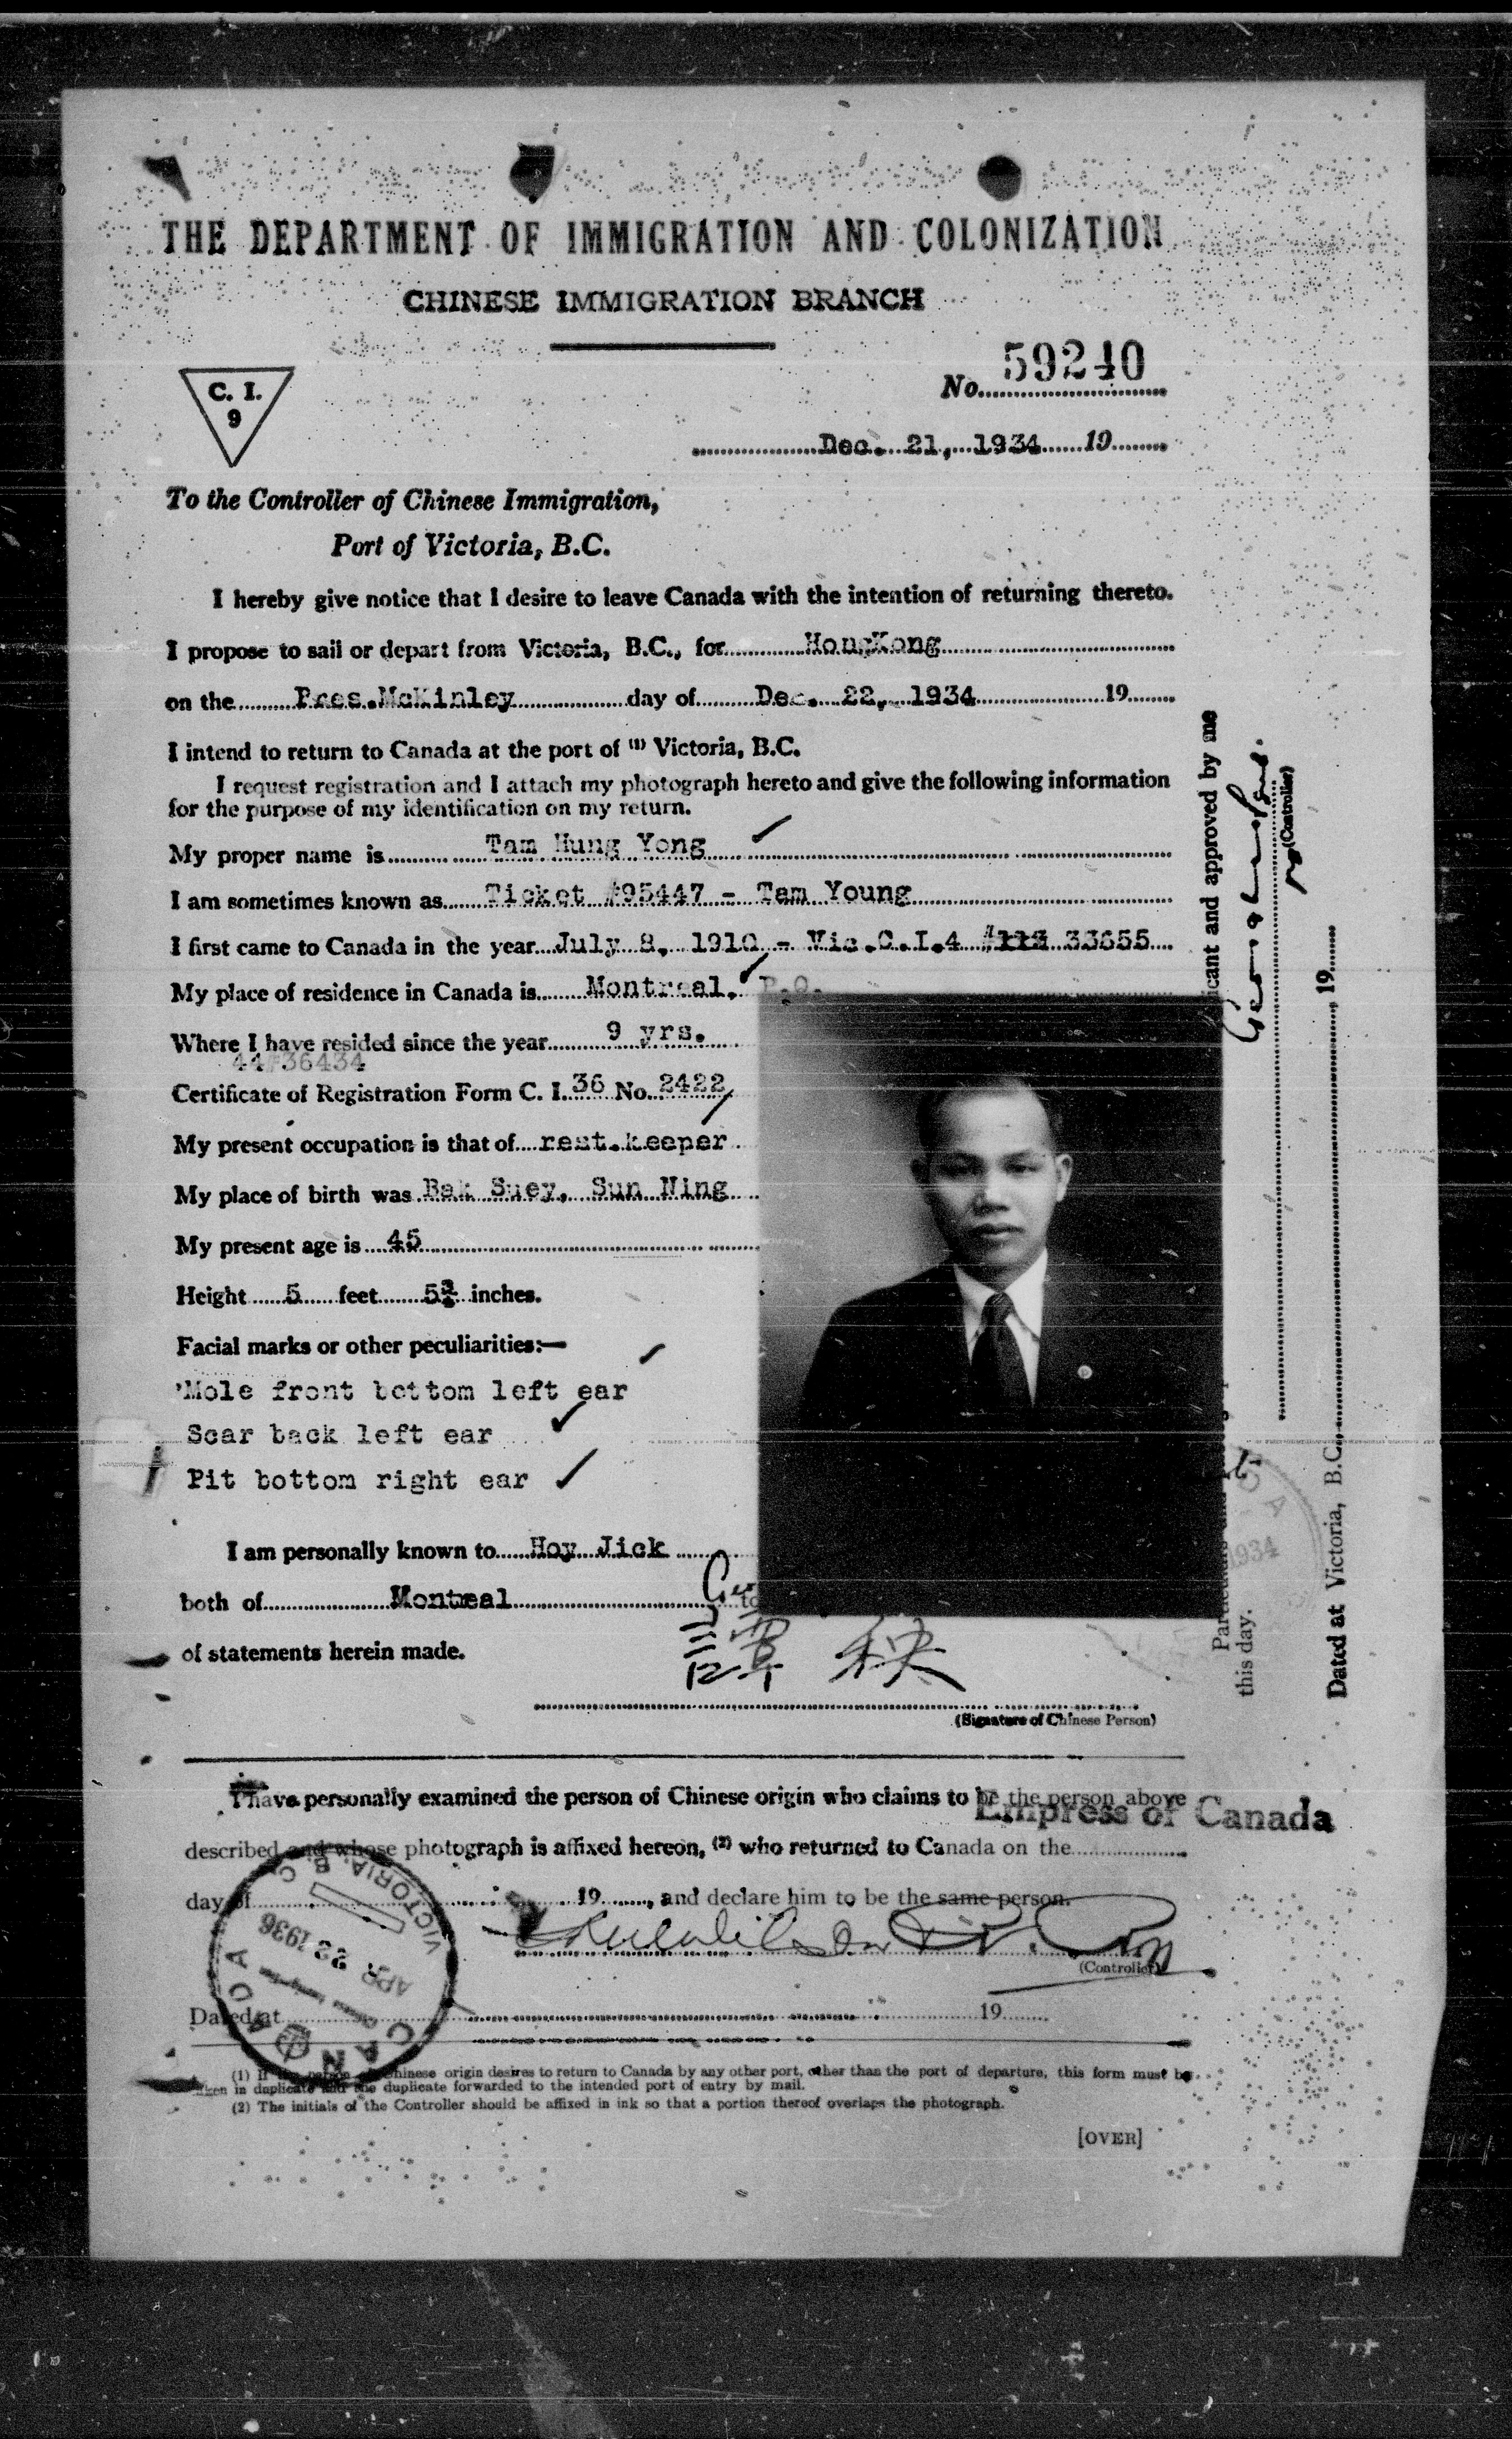 THE DEPARTMENT OF IMMIGRATION AND COLONIZATION
CHINESE IMMIGRATION BRANCH
C. I.
9
No. 59240
Dec. 21, 1934 19
To the Controller of Chinese Immigration,
Port of Victoria, B.C.
I hereby give notice that I desire to leave Canada with the intention of returning thereto.
I propose to sail or depart from Victoria, B.C., for HongKong
on the Pres.McKinley day of Dec. 22, 1934 19
I intend to return to Canada at the port of (1) Victoria, B.C.
I request registration and I attach my photograph hereto and give the following information
for the purpose of my identification on my return.
My proper name is Tam Hung Yong
I am sometimes known as Ticket #95447 - Tam Young
I first came to Canada in the year July 8, 1910 - Vic.C.I.4 # 33655
My place of residence in Canada is Montreal, P.Q.
Where I have resided since the year 9 yrs.
44#36434
Certificate of Registration Form C. I. 36 No. 2422
My present occupation is that of rest.keeper
My place of birth was Bak Suey, Sun Ning
My present age is 45
Height 5 feet 5¾ inches.
Facial marks or other peculiarities:—
Mole front bottom left ear
Scar back left ear
Pit bottom right ear
I am personally known to Hoy Jick
both of Montreal to
of statements herein made.
譚 秧
(Signature of Chinese Person)
I have personally examined the person of Chinese origin who claims to be the person above
Empress of Canada
described and whose photograph is affixed hereon, (2) who returned to Canada on the
day of 19, and declare him to be the same person.
(Controller)
Dated at 19
VICTORIA, B. C.
APR 22 1936
CANADA
(1) If the person of Chinese origin desires to return to Canada by any other port, other than the port of departure, this form must be
taken in duplicate and the duplicate forwarded to the intended port of entry by mail.
(2) The initials of the Controller should be affixed in ink so that a portion thereof overlaps the photograph.
[OVER]
icant and approved by me
(Controller)
this day.
1934
Dated at Victoria, B.C., 19